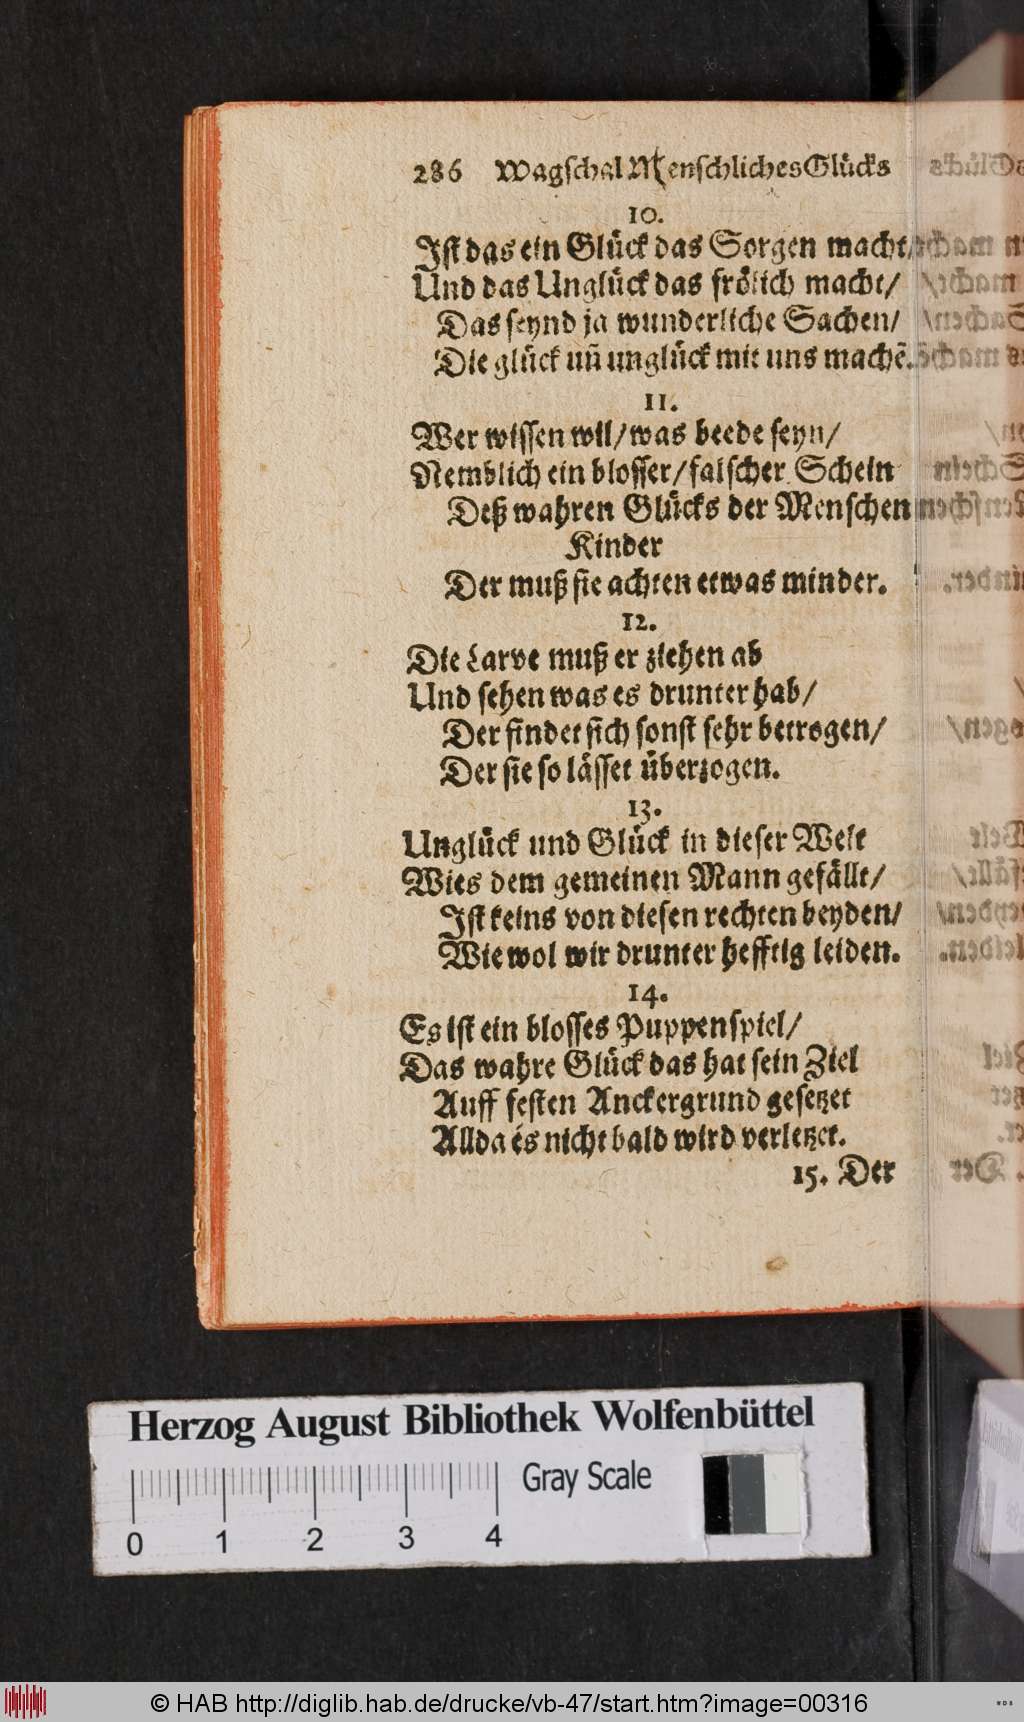 286 Wagschal Menschliches Glücks
10.
Ist das ein Glück das Sorgen macht/
Und das Unglück das frölich macht/
Das seynd ja wunderliche Sachen/
Die glück uñ unglück mit uns machẽ.
11.
Wer wissen wil/ was beede seyn/
Nemblich ein blosser/ falscher Schein
Deß wahren Glücks der Menschen
Kinder
Der muß sie achten etwas minder.
12.
Die Larve muß er ziehen ab
Und sehen was es drunter hab/
Der findet sich sonst sehr betrogen/
Der sie so lässet überzogen.
13.
Unglück und Glück in dieser Welt
Wies dem gemeinen Mann gefällt/
Ist keins von diesen rechten beyden/
Wie wol wir drunter hefftig leiden.
14.
Es ist ein blosses Puppenspiel/
Das wahre Glück das hat sein Ziel
Auff festen Anckergrund gesetzet
Allda es nicht bald wird verletzet.
15. Der
Herzog August Bibliothek Wolfenbüttel
Gray Scale
0 1 2 3 4
© HAB http://diglib.hab.de/drucke/vb-47/start.htm?image=00316